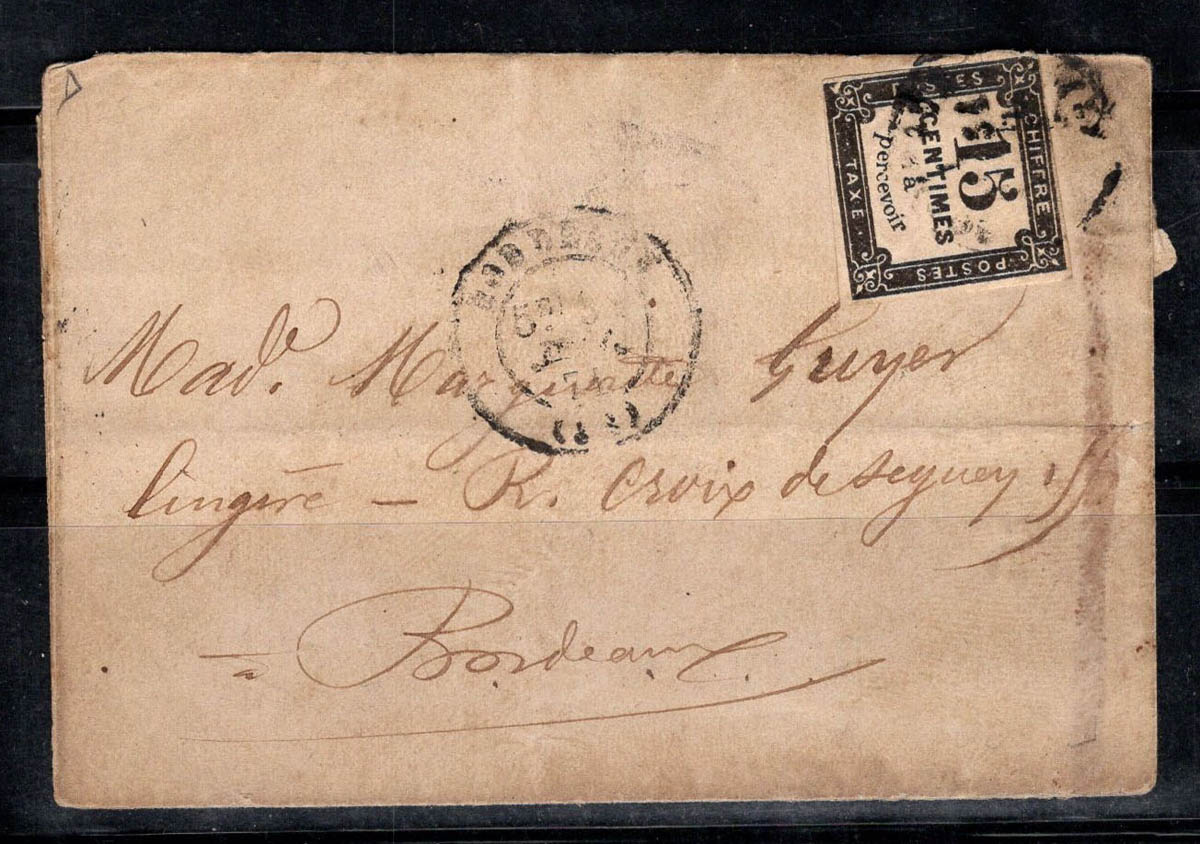 CHIFFRE
TAXE
POSTES
15
CENTIMES
à
percevoir
BORDEAUX
(32)
Made. Marguerite Guyer
lingère – R. Croix de Seguey
= à Bordeaux.